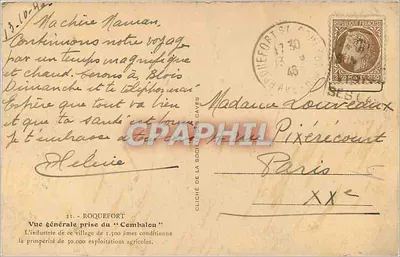 Ma chère Maman,
Continuons notre voyage
par un temps magnifique
et chaud. Serons à Blois
Dimanche et te téléphonerai
J'espère que tout va bien
et que ta santé est bonne
je t'embrasse
Helène
Madame Louveaux
Pixérécourt
Paris
XXe
17 30
45
ROQUEFORT
CPAPHIL
CLICHÉ DE LA SOCIÉTÉ DES CAVES
21. - ROQUEFORT
Vue générale prise du "Combalou"
L'industrie de ce village de 1.500 âmes conditionne
la prospérité de 30.000 exploitations agricoles.